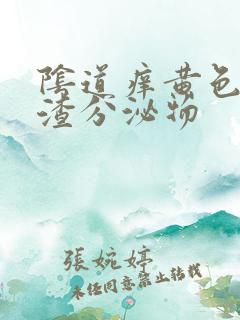 陰道痒黄色
渣分泌物
張婉婷
未经同意禁止转载